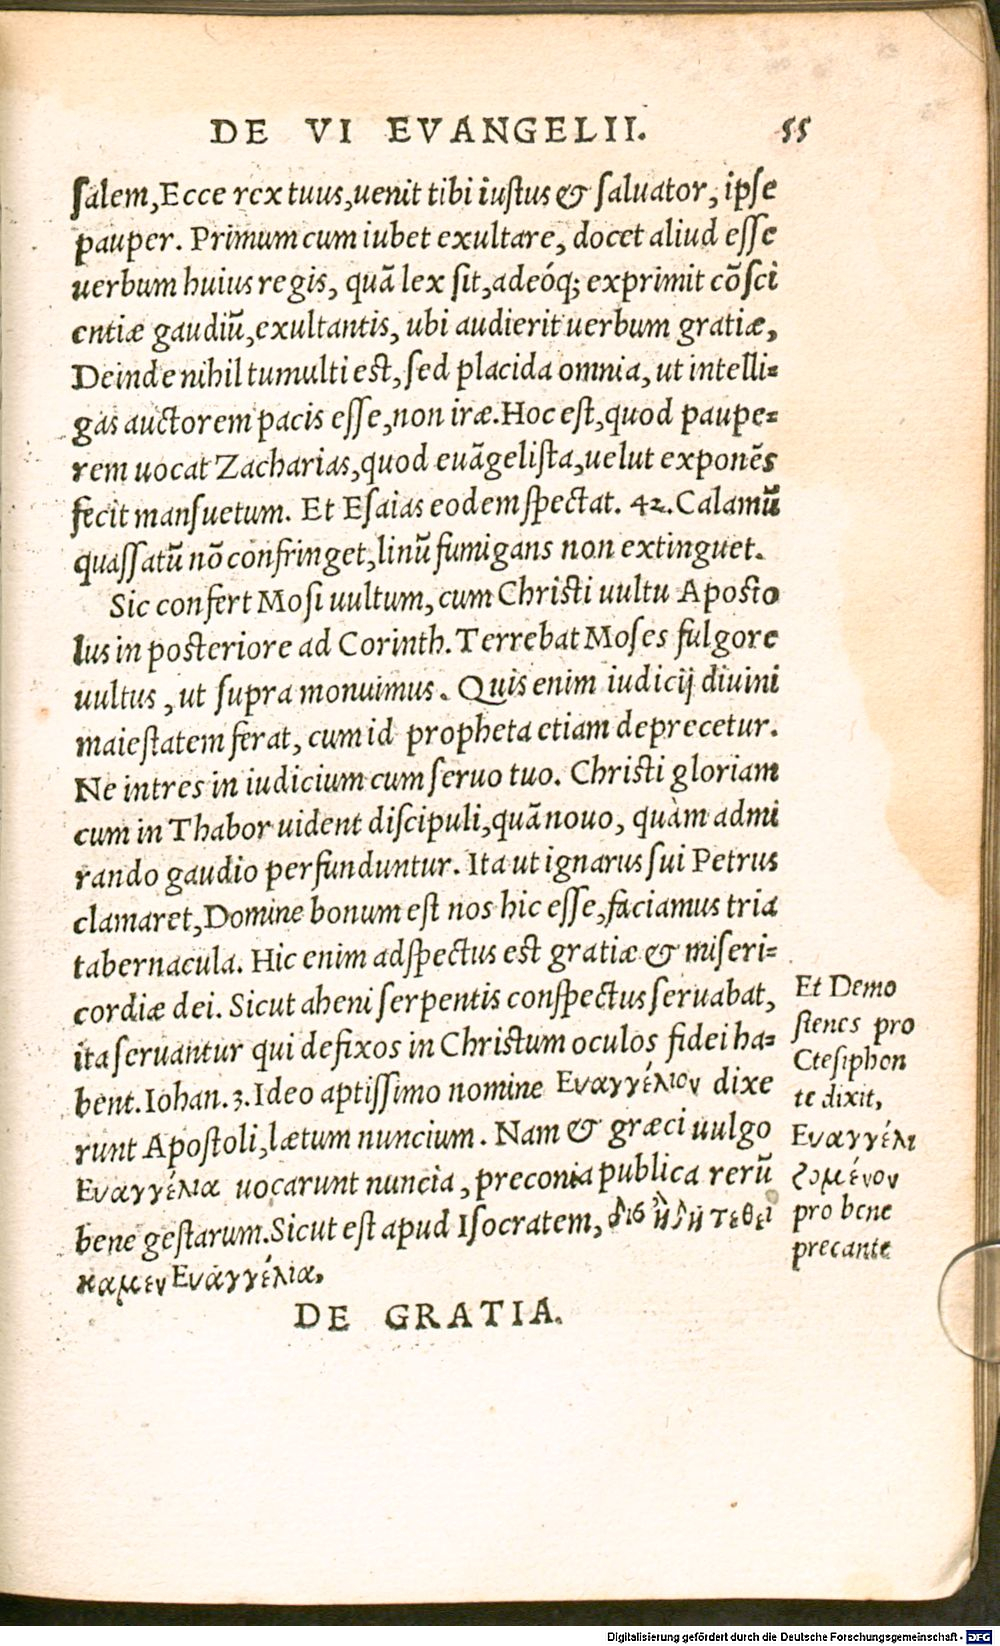 DE VI EVANGELII. 55
salem, Ecce rex tuus, uenit tibi iustus & saluator, ipse
pauper. Primum cum iubet exultare, docet aliud esse
uerbum huius regis, quã lex sit, adeóq; exprimit cõsci
entiæ gaudiũ, exultantis, ubi audierit uerbum gratiæ,
Deinde nihil tumulti est, sed placida omnia, ut intelli-
gas auctorem pacis esse, non iræ. Hoc est, quod paupe-
rem uocat Zacharias, quod euãgelista, uelut exponẽs
fecit mansuetum. Et Esaias eodem spectat. 42. Calamũ
quassatũ nõ confringet, linũ fumigans non extinguet.
Sic confert Mosi uultum, cum Christi uultu Aposto
lus in posteriore ad Corinth. Terrebat Moses fulgore
uultus, ut supra monuimus. Quis enim iudicij diuini
maiestatem ferat, cum id propheta etiam deprecetur.
Ne intres in iudicium cum seruo tuo. Christi gloriam
cum in Thabor uident discipuli, quã nouo, quàm admi
rando gaudio perfunduntur. Ita ut ignarus sui Petrus
clamaret, Domine bonum est nos hic esse, faciamus tria
tabernacula. Hic enim adspectus est gratiæ & miseri-
cordiæ dei. Sicut aheni serpentis conspectus seruabat,
ita seruantur qui defixos in Christum oculos fidei ha-
bent. Iohan. 3. Ideo aptissimo nomine Ευαγγέλιον dixe
runt Apostoli, lætum nuncium. Nam & græci uulgo
Ευαγγέλια uocarunt nuncia, preconia publica rerũ
bene gestarum. Sicut est apud Isocratem, δὶς ἤδη τεθεί
καμεν Ευαγγέλια.
DE GRATIA.
Et Demo
stenes pro
Ctesiphon
te dixit,
Ευαγγέλι
ζομένον
pro bene
precante
Digitalisierung gefördert durch die Deutsche Forschungsgemeinschaft - DFG